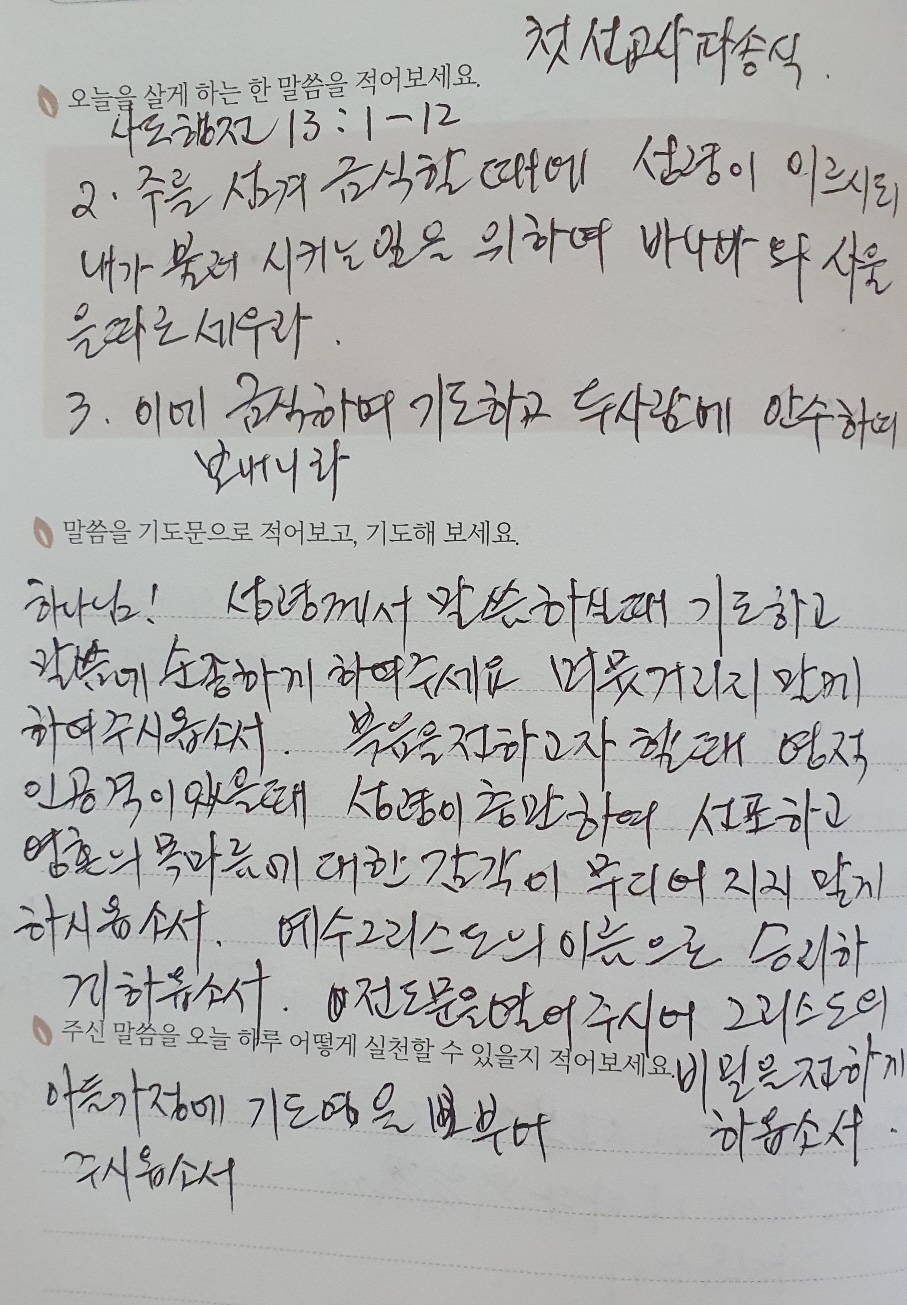 첫 선교사 파송식.
오늘을 살게 하는 한 말씀을 적어보세요.
사도행전 13:1-12
2. 주를 섬겨 금식할 때에 성령이 이르시되
내가 불러 시키는 일을 위하여 바나바 와 사울
을 따로 세우라.
3. 이에 금식하며 기도하고 두사람에 안수하며
보내니라
말씀을 기도문으로 적어보고, 기도해 보세요.
하나님! 성령께서 말씀하실때 기도하고
말씀에 순종하게 하여주세요 머뭇거리지 말게
하여주시옵소서. 복음을 전하고자 할때 영적
인공격이 있을때 성령이 충만하여 선포하고
영혼의 목마름에 대한 감각이 무디어 지지 말게
하시옵소서. 예수그리스도의 이름으로 승리하
게 하옵소서. 전도문을 열어 주시어 그리스도의
주신 말씀을 오늘 하루 어떻게 실천할 수 있을지 적어보세요.
비밀을 전하게
아들가정에 기도영을 부부어
하옵소서.
주시옵소서